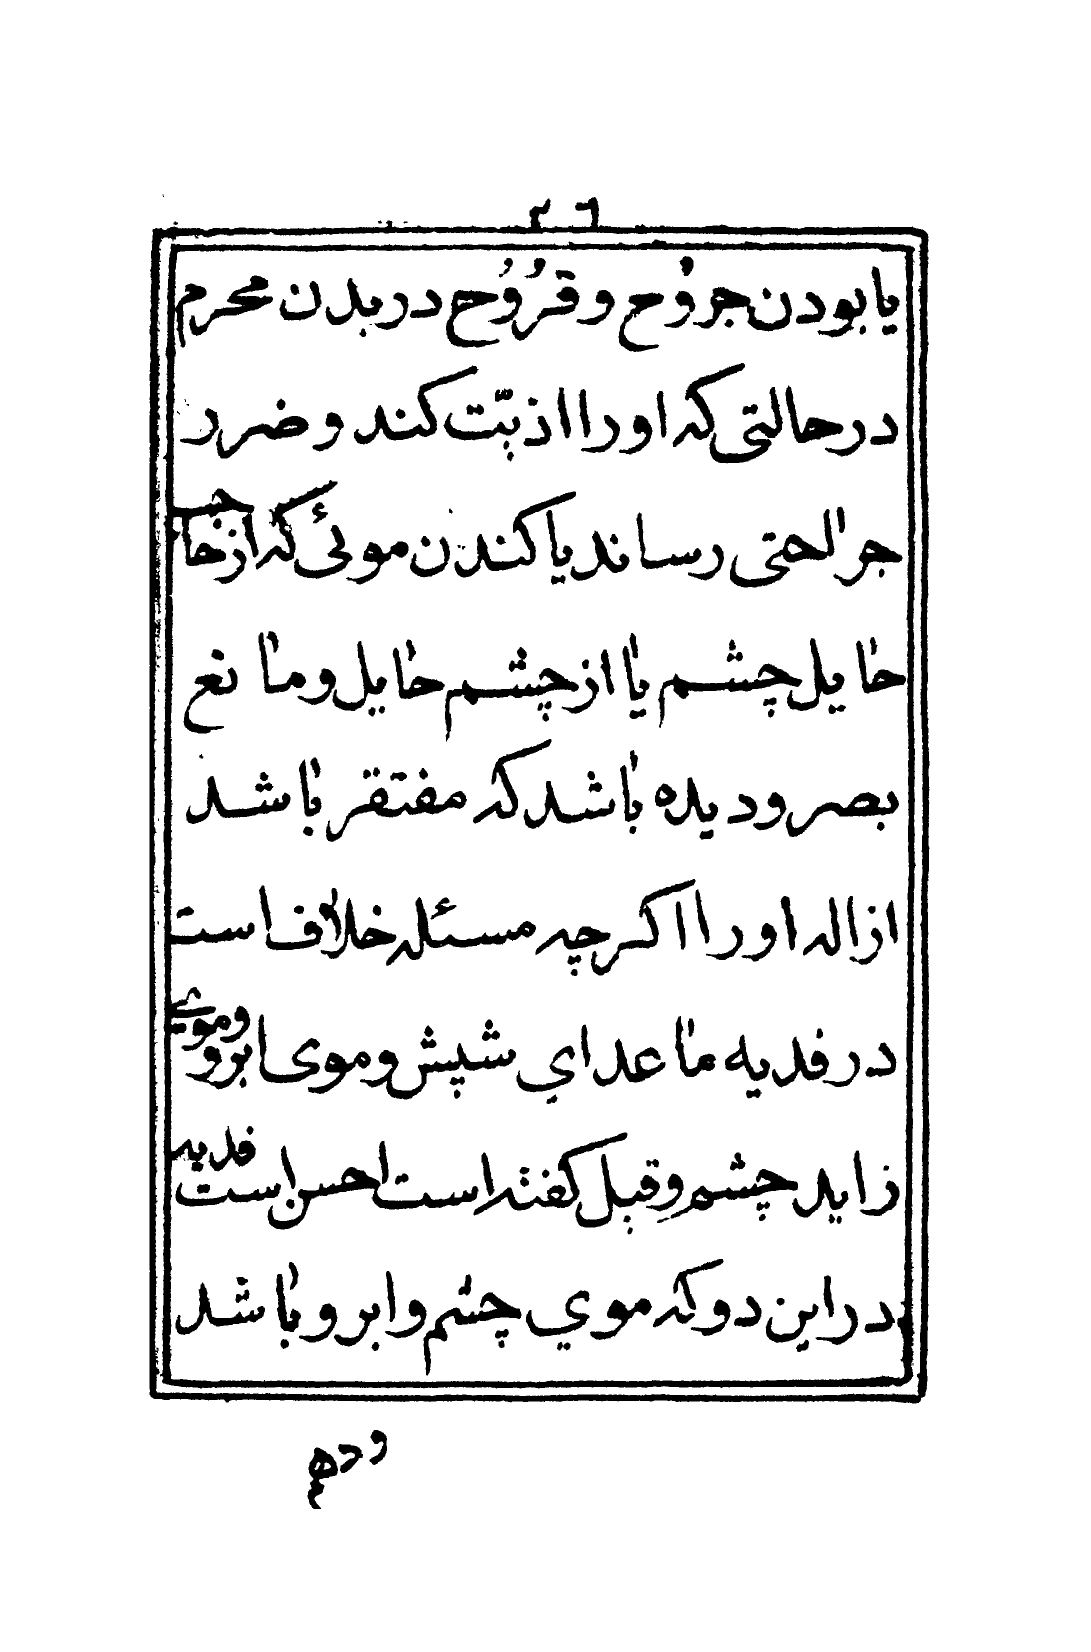 ٢٦
یا بودن جرُوح و قرُوح در بدن محرم
در حالتی که او را اذیّت کند و ضرر
جراحتی رساند یا کندن موئی که از جانب
حایل چشم یا از چشم حایل و مانع
بصر و دیده باشد که مفتقر باشد
ازاله او را اگر چه مسئله خلاف است
در فدیه ما عدای شپش و موی ابرو و موی
زاید چشم و قیل گفته است احسن است فدیه
در این دو که موی چشم و ابرو باشد
و دهم